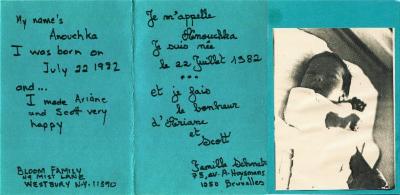 My name's
Anouchka
I was born on
July 22 1982
and...
I made Ariane
und Scott very
happy
BLOOM FAMILY
49 MIST LANE
WESTBURY N.Y. 11590
Je m'appelle
Anouchka
Je suis née
le 22 Juillet 1982
...
et je fais
le bonheur
d'Ariane
et
Scott
Famille
95, av. A. Huysmans
1050 Bruxelles